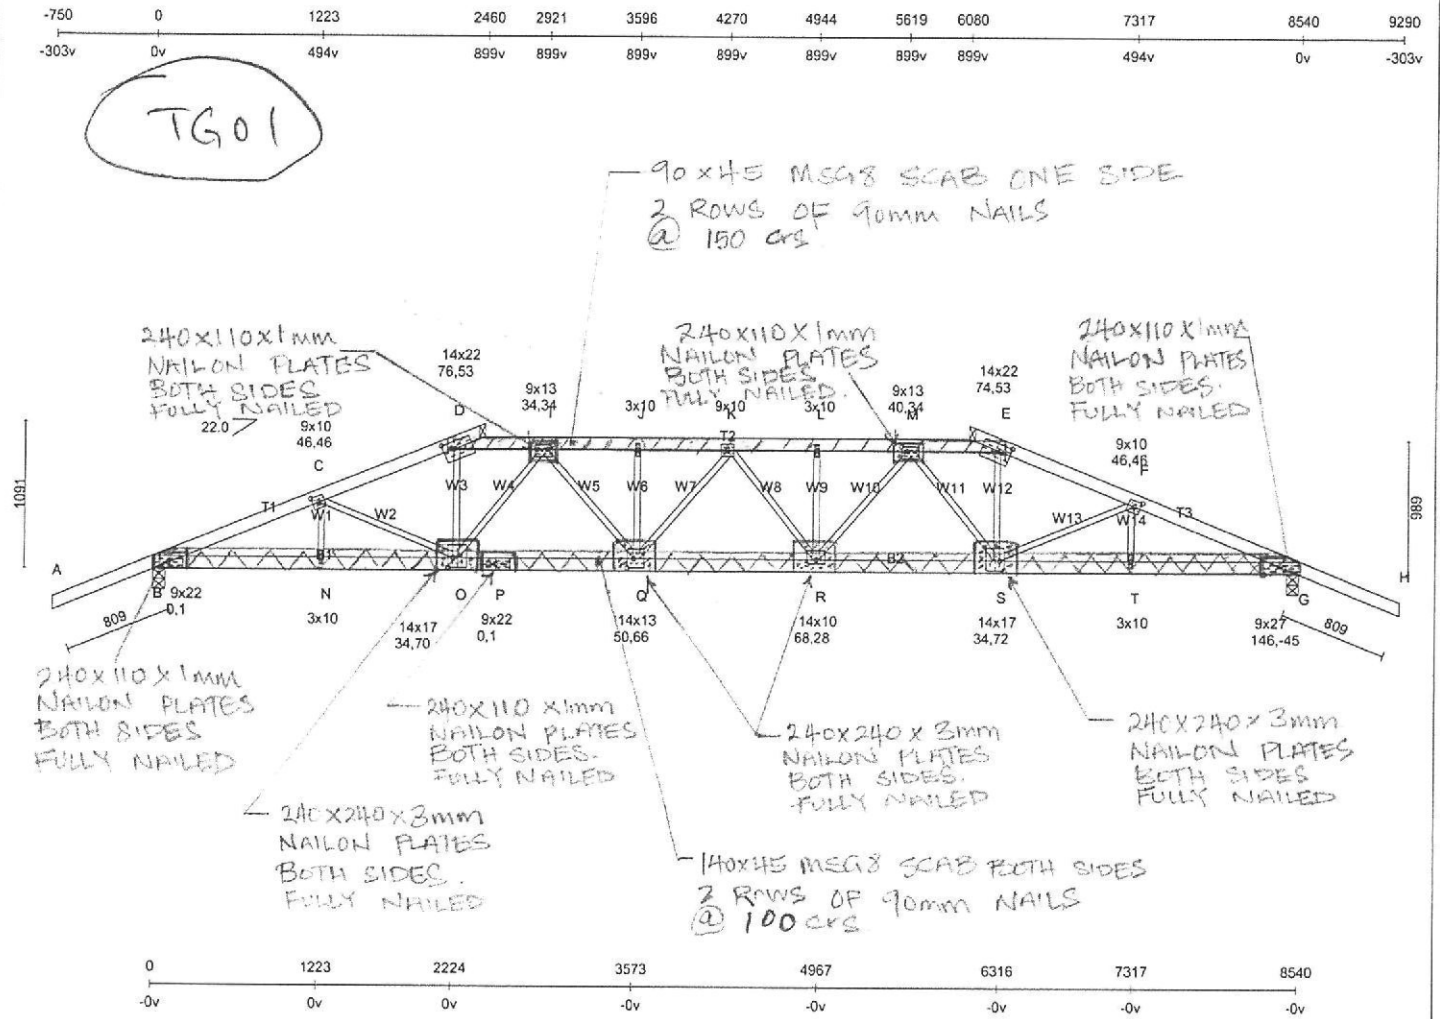 -750 0 1223 2460 2921 3596 4270 4944 5619 6080 7317 8540 9290
-303v 0v 494v 899v 899v 899v 899v 899v 899v 899v 494v 0v -303v
TG01
90 x 45 MSG8 SCAB ONE SIDE
2 ROWS OF 90mm NAILS
@ 150 crs
240x110x1mm
NAILON PLATES
BOTH SIDES
FULLY NAILED
22.0
9x10
46,46
C
14x22
76,53
D
9x13
34,34
I
3x10
J
240x110x1mm
NAILON PLATES
BOTH SIDES
FULLY NAILED.
9x10
K
T2
3x10
L
9x13
40,34
M
14x22
74,53
E
240x110x1mm
NAILON PLATES
BOTH SIDES.
FULLY NAILED
9x10
46,46
F
1091
989
T1 W1 W2 W3 W4 W5 W6 W7 W8 W9 W10 W11 W12 W13 W14 T3
B1 B2
A B N O P Q R S T G H
809
9x22
0,1
3x10
14x17
34,70
9x22
0,1
14x13
50,66
14x10
68,28
14x17
34,72
3x10
9x27
146,-45
809
240x110x1mm
NAILON PLATES
BOTH SIDES
FULLY NAILED
240x110x1mm
NAILON PLATES
BOTH SIDES.
FULLY NAILED
240x240x3mm
NAILON PLATES
BOTH SIDES.
FULLY NAILED
240x240x3mm
NAILON PLATES
BOTH SIDES
FULLY NAILED
240x240x3mm
NAILON PLATES
BOTH SIDES.
FULLY NAILED
140x45 MSG8 SCAB BOTH SIDES
2 ROWS OF 90mm NAILS
@ 100 crs
0 1223 2224 3573 4967 6316 7317 8540
-0v 0v 0v -0v -0v -0v 0v -0v